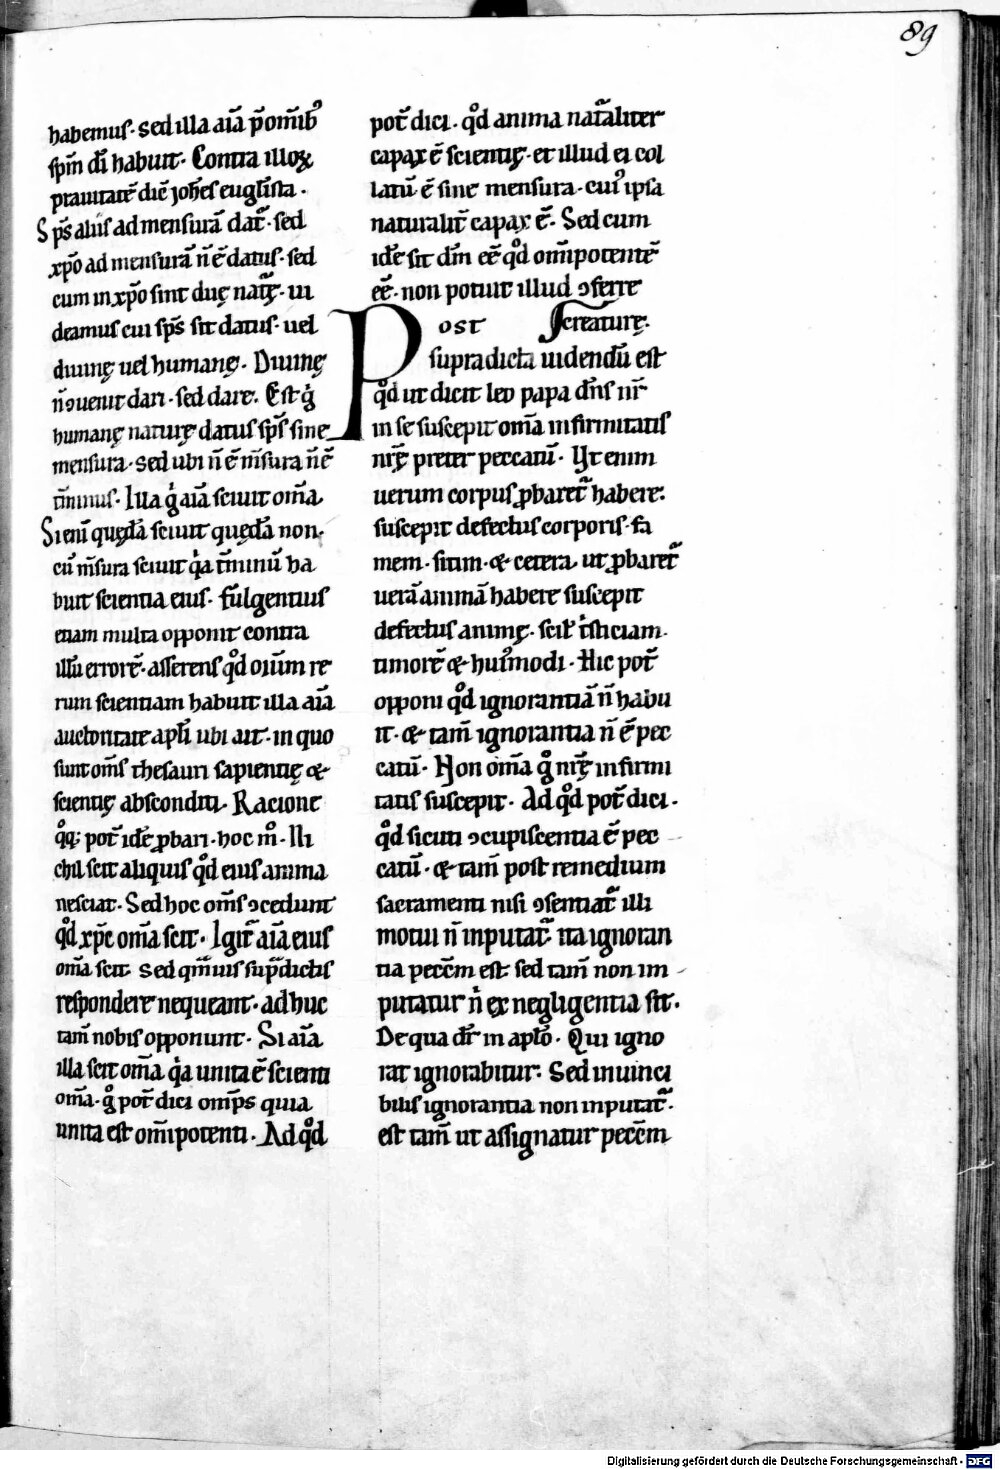 89
habemus. sed illa aīa p̄ om̄ib᾽
sp̄m dī habuit. Contra illoꝝ
prauitatē dic̄ ioh̄es eugl̄ista.
Sp̄s aliis ad mensurā dat᷑. sed
xp̄o ad mensurā n̄ ē datus. sed
cum in xp̄o sint duę nat᷑ę. ui
deamus cui sp̄s sit datus. uel
diuinę uel humanę. Diuinę
n̄ ꝯuenit dari. sed dare. Est gͥ
humanę naturę datus sp̄s sine
mensura. sed ubi n̄ ē m̄sura n̄ ē
t̄minus. Illa gͥ aīa sciuit om̄a.
Si eni᷑ quędā sciuit quędā non.
cū m̄sura sciuit qͥa t̄minū ha
buit scientia eius. Fulgentius
etiam multa opponit contra
illū errorē. asserens qͦd oīum re
rum scientiam habuit illa aīa
auctoritate apl̄i ubi ait. in quo
sunt om̄s thesauri sapientię &
scientię absconditi. Racione
qͦq; pot̄ idē ꝓbari. hoc mͦ. Ni
chil scit aliquis qͦd eius anima
nesciat. Sed hoc om̄s ꝯcedunt
qͦd xp̄c om̄a scit. Igit᷑ aīa eius
om̄a scit. sed qm̄uis sup̄dictis
respondere nequeant. adhuc
tam̄ nobis opponunt. Si aīa
illa scit om̄a qͥa unita ē scienti
om̄a. gͦ pot̄ dici om̄ps quia
unita est om̄ipotenti. Ad qͦd
pot̄ dici. qͦd anima nat᷑aliter
capax ē scientię. et illud ei col
latū ē sine mensura. cui᾽ ipsa
naturalit̄ capax ē. Sed cum
idē sit dm̄ eē qͦd om̄ipotentē
eē. non potuit illud ꝯferre
Post creaturę.
supradicta uidendū est
qͦd ut dicit leo papa dn̄s nr̄
in se suscepit om̄a infirmitatis
nr̄ę preter peccatū. Vt enim
uerum corpus ꝓbaret᷑ habere.
suscepit defectus corporis. fa
mem. sitim. & cetera. ut ꝓbaret᷑
uerā animā habere suscepit
defectus animę. scił tͥsticiam.
timorē & hui᾽modi. Hic pot̄
opponi qͦd ignorantiā n̄ habu
it. & tam̄ ignorantia n̄ ē pec
catū. Non om̄a gͦ nr̄ę infirmi
tatis suscepit. Ad qͦd pot̄ dici.
qͦd sicuti ꝯcupiscentia ē pec
catū. & tam̄ post remedium
sacramenti nisi ꝯsentiat᷑ illi
motui n̄ inputat᷑. ita ignoran
tia pecc̄m est. sed tam̄ non im
putatur nͥ ex negligentia sit.
De qua dr̄ in apl̄o. Qui igno
rat ignorabitur. Sed inuinci
bilis ignorantia non inputat᷑.
est tam̄ ut assignatur pecc̄m
Digitalisierung gefördert durch die Deutsche Forschungsgemeinschaft - DFG